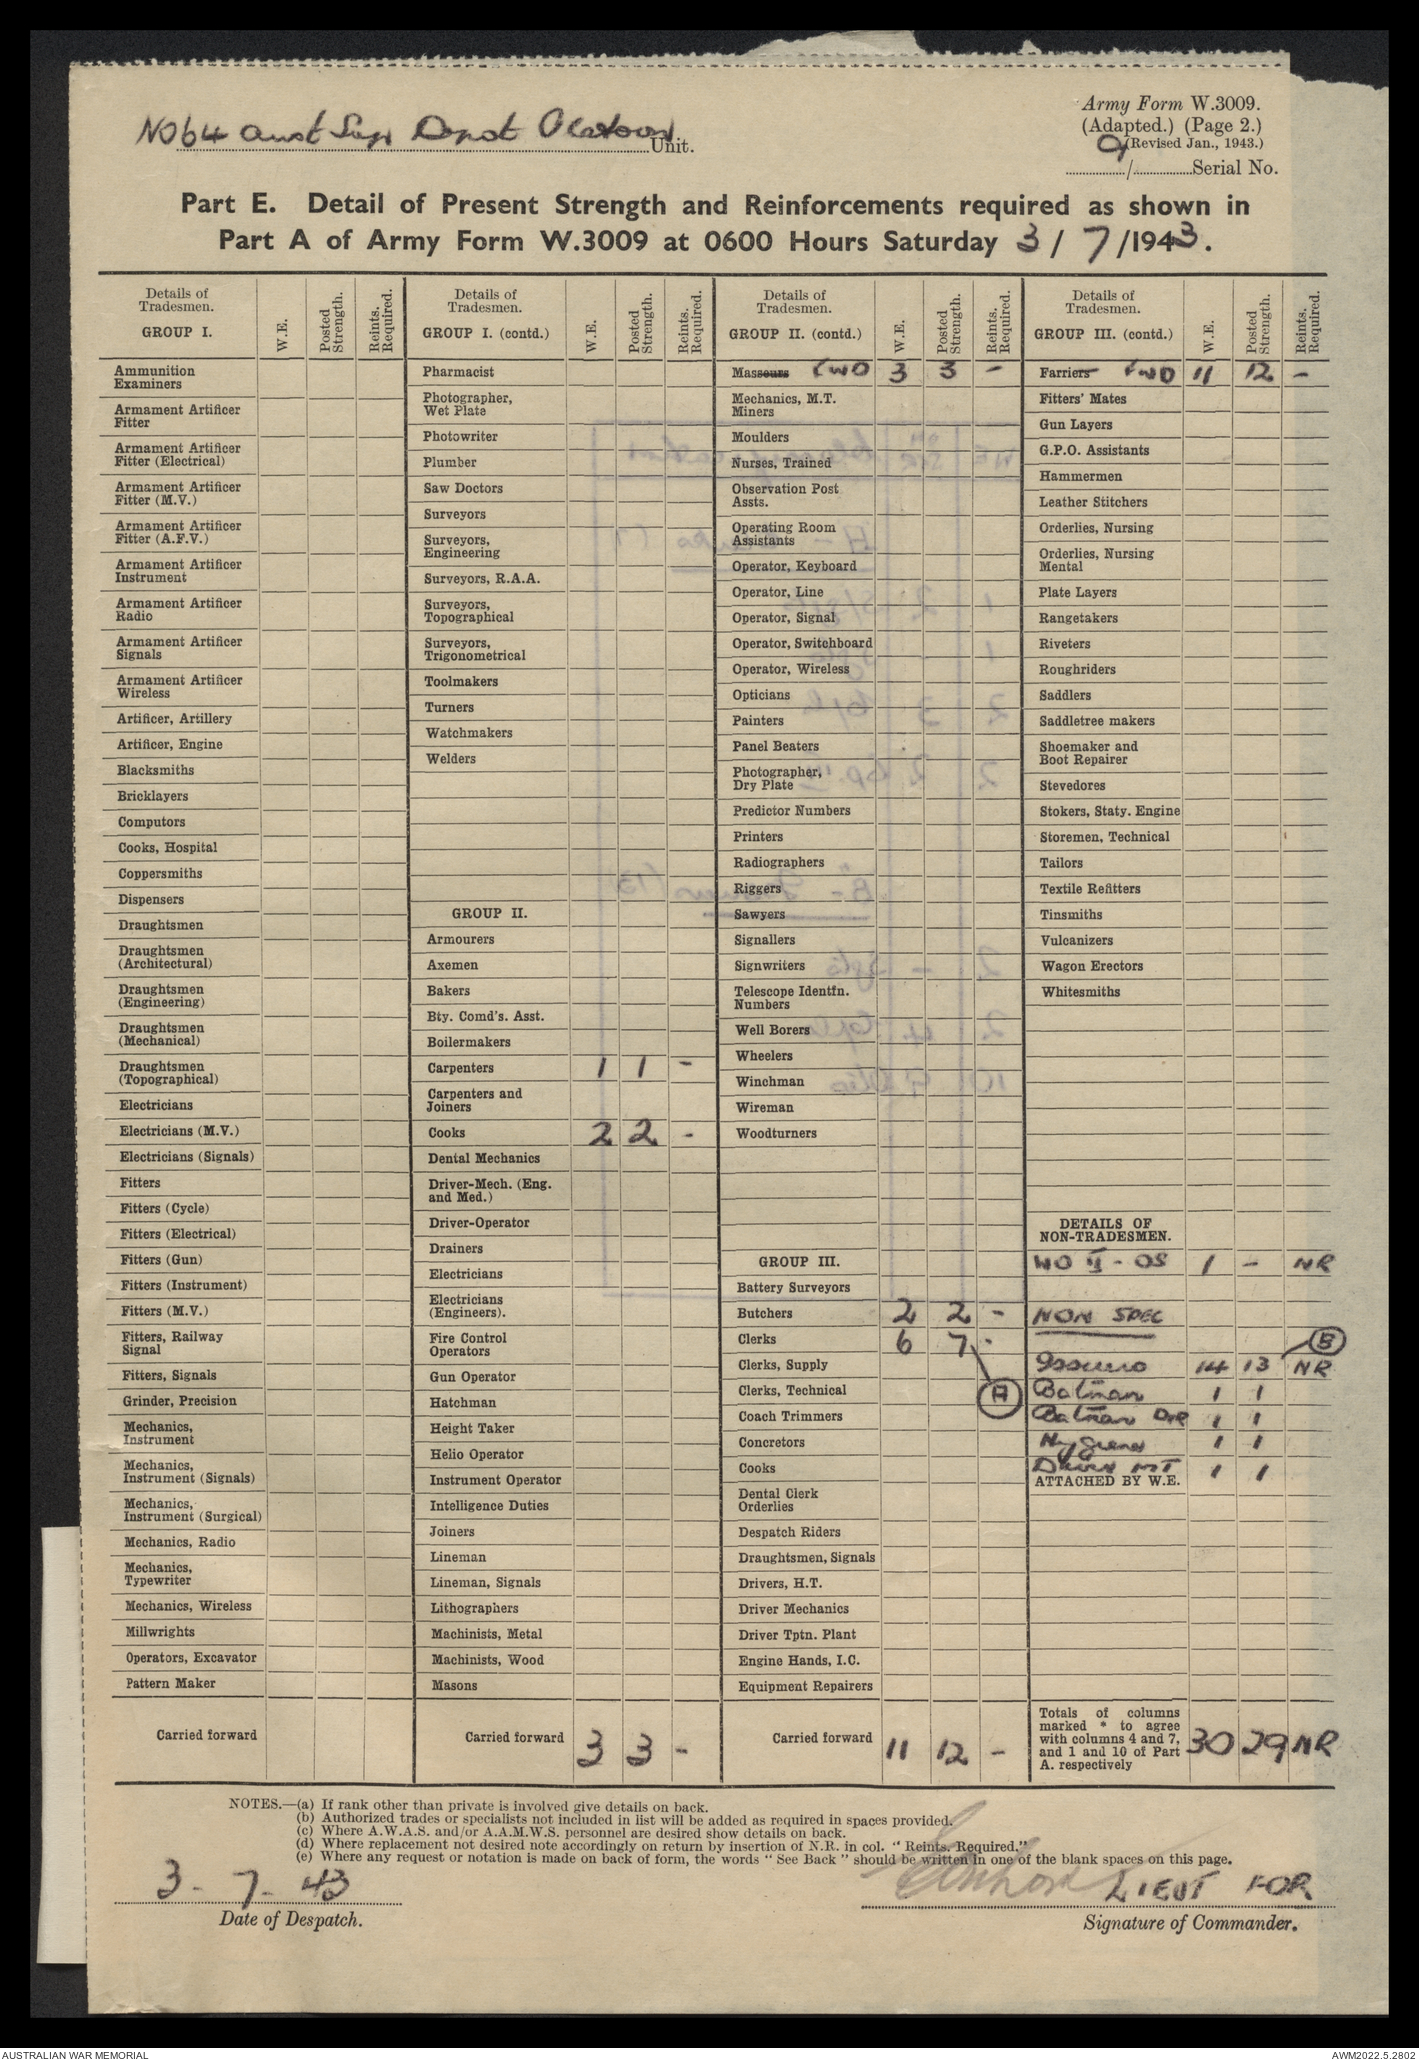 Army Form W.3009.
(Adapted.) (Page 2.)
(Revised Jan., 1943.)
No 64 Aust Sup Depot Platoon Unit.
9/ Serial No.
Part E. Detail of Present Strength and Reinforcements required as shown in
Part A of Army Form W.3009 at 0600 Hours Saturday 3/7/1943.
Details of Tradesmen. GROUP I. W.E. Posted Strength. Reints. Required.
Ammunition Examiners
Armament Artificer Fitter
Armament Artificer Fitter (Electrical)
Armament Artificer Fitter (M.V.)
Armament Artificer Fitter (A.F.V.)
Armament Artificer Instrument
Armament Artificer Radio
Armament Artificer Signals
Armament Artificer Wireless
Artificer, Artillery
Artificer, Engine
Blacksmiths
Bricklayers
Computors
Cooks, Hospital
Coppersmiths
Dispensers
Draughtsmen
Draughtsmen (Architectural)
Draughtsmen (Engineering)
Draughtsmen (Mechanical)
Draughtsmen (Topographical)
Electricians
Electricians (M.V.)
Electricians (Signals)
Fitters
Fitters (Cycle)
Fitters (Electrical)
Fitters (Gun)
Fitters (Instrument)
Fitters (M.V.)
Fitters, Railway Signal
Fitters, Signals
Grinder, Precision
Mechanics, Instrument
Mechanics, Instrument (Signals)
Mechanics, Instrument (Surgical)
Mechanics, Radio
Mechanics, Typewriter
Mechanics, Wireless
Millwrights
Operators, Excavator
Pattern Maker
Carried forward
Details of Tradesmen. GROUP I. (contd.) W.E. Posted Strength. Reints. Required.
Pharmacist
Photographer, Wet Plate
Photowriter
Plumber
Saw Doctors
Surveyors
Surveyors, Engineering
Surveyors, R.A.A.
Surveyors, Topographical
Surveyors, Trigonometrical
Toolmakers
Turners
Watchmakers
Welders
GROUP II.
Armourers
Axemen
Bakers
Bty. Comd's. Asst.
Boilermakers
Carpenters 1 1 -
Carpenters and Joiners
Cooks 2 2 -
Dental Mechanics
Driver-Mech. (Eng. and Med.)
Driver-Operator
Drainers
Electricians
Electricians (Engineers).
Fire Control Operators
Gun Operator
Hatchman
Height Taker
Helio Operator
Instrument Operator
Intelligence Duties
Joiners
Lineman
Lineman, Signals
Lithographers
Machinists, Metal
Machinists, Wood
Masons
Carried forward 3 3 -
Details of Tradesmen. GROUP II. (contd.) W.E. Posted Strength. Reints. Required.
Masseurs FWD 3 3 -
Mechanics, M.T.
Miners
Moulders
Nurses, Trained
Observation Post Assts.
Operating Room Assistants
Operator, Keyboard
Operator, Line
Operator, Signal
Operator, Switchboard
Operator, Wireless
Opticians
Painters
Panel Beaters
Photographer, Dry Plate
Predictor Numbers
Printers
Radiographers
Riggers
Sawyers
Signallers
Signwriters
Telescope Identfn. Numbers
Well Borers
Wheelers
Winchman
Wireman
Woodturners
GROUP III.
Battery Surveyors
Butchers 2 2 -
Clerks 6 7 -
Clerks, Supply
Clerks, Technical (A)
Coach Trimmers
Concretors
Cooks
Dental Clerk Orderlies
Despatch Riders
Draughtsmen, Signals
Drivers, H.T.
Driver Mechanics
Driver Tptn. Plant
Engine Hands, I.C.
Equipment Repairers
Carried forward 11 12 -
Details of Tradesmen. GROUP III. (contd.) W.E. Posted Strength. Reints. Required.
Farriers FWD 11 12 -
Fitters' Mates
Gun Layers
G.P.O. Assistants
Hammermen
Leather Stitchers
Orderlies, Nursing
Orderlies, Nursing Mental
Plate Layers
Rangetakers
Riveters
Roughriders
Saddlers
Saddletree makers
Shoemaker and Boot Repairer
Stevedores
Stokers, Staty. Engine
Storemen, Technical
Tailors
Textile Refitters
Tinsmiths
Vulcanizers
Wagon Erectors
Whitesmiths
DETAILS OF NON-TRADESMEN.
WO II - OS 1 - NR
NON SPEC
(B)
Issuers 14 13 NR
Batman 1 1
Batman Dvr 1 1
Hygiene 1 1
Driver MT 1 1
ATTACHED BY W.E.
Totals of columns marked * to agree with columns 4 and 7, and 1 and 10 of Part A. respectively 30 29 NR
NOTES.—(a) If rank other than private is involved give details on back.
(b) Authorized trades or specialists not included in list will be added as required in spaces provided.
(c) Where A.W.A.S. and/or A.A.M.W.S. personnel are desired show details on back.
(d) Where replacement not desired note accordingly on return by insertion of N.R. in col. "Reints. Required."
(e) Where any request or notation is made on back of form, the words "See Back" should be written in one of the blank spaces on this page.
3-7-43
LIEUT FOR
Date of Despatch.
Signature of Commander.
AUSTRALIAN WAR MEMORIAL
AWM2022.5.2802